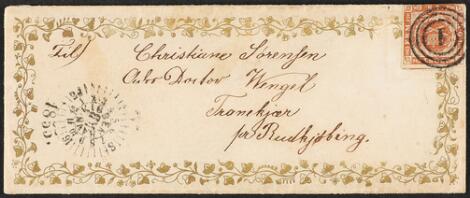 Til
Christiane Sørensen
Adr Doctor Wengel
Tranekjær
pr Rudkjøbing.
1855.
1